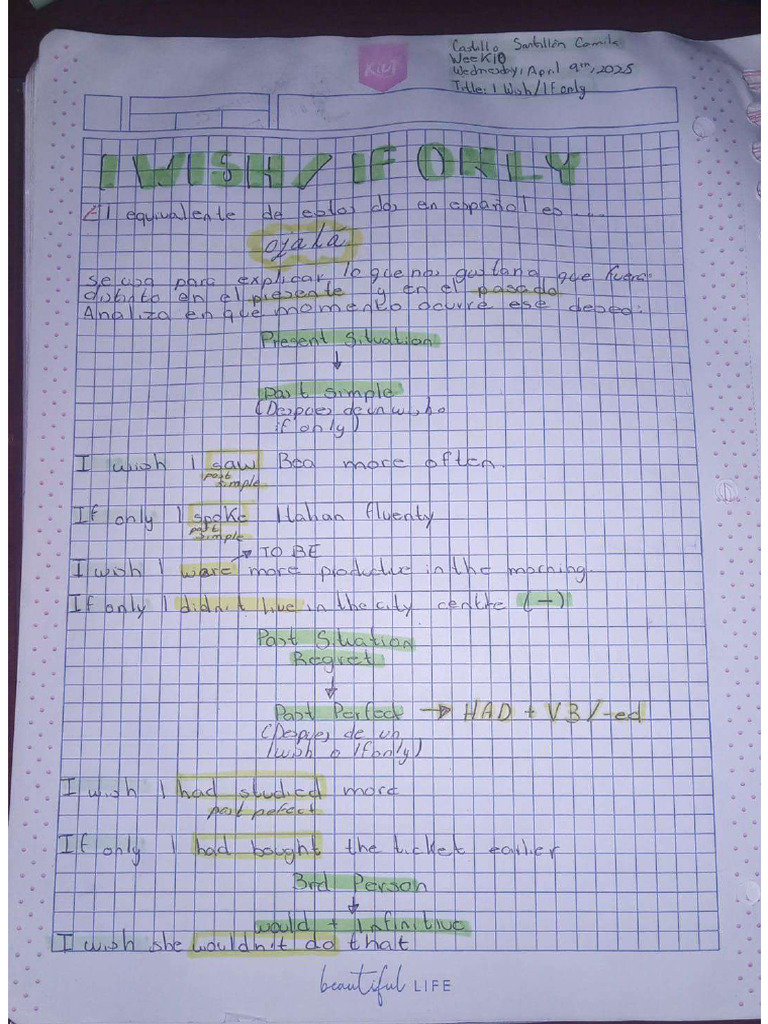 Castillo Santillán Camila
Week 10
Kiut
Wednesday, April 9th, 2025
Title: I Wish/If only
I WISH / IF ONLY
El equivalente de estos dos en español es.....
ojalá
se usa para explicar lo que nos gustaria que fuera
distinto en el presente y en el pasado
Analiza en que momento ocurre ese deseo:
Present Situation
Past Simple
(Despues de un wish o
if only)
I wish I saw Bea more often.
past
simple
If only I spoke Italian fluenty
past
simple
TO BE
I wish I were more productive in the morning.
If only I didn't live in the city centre (-)
Past Situation
Regret
Past Perfect → HAD + V3/-ed
(Despues de un
I wish o If only)
I wish I had studied more
past perfect
If only I had bought the ticket earlier
3rd Person
would + infinitive
I wish she wouldn't do that
beautiful LIFE